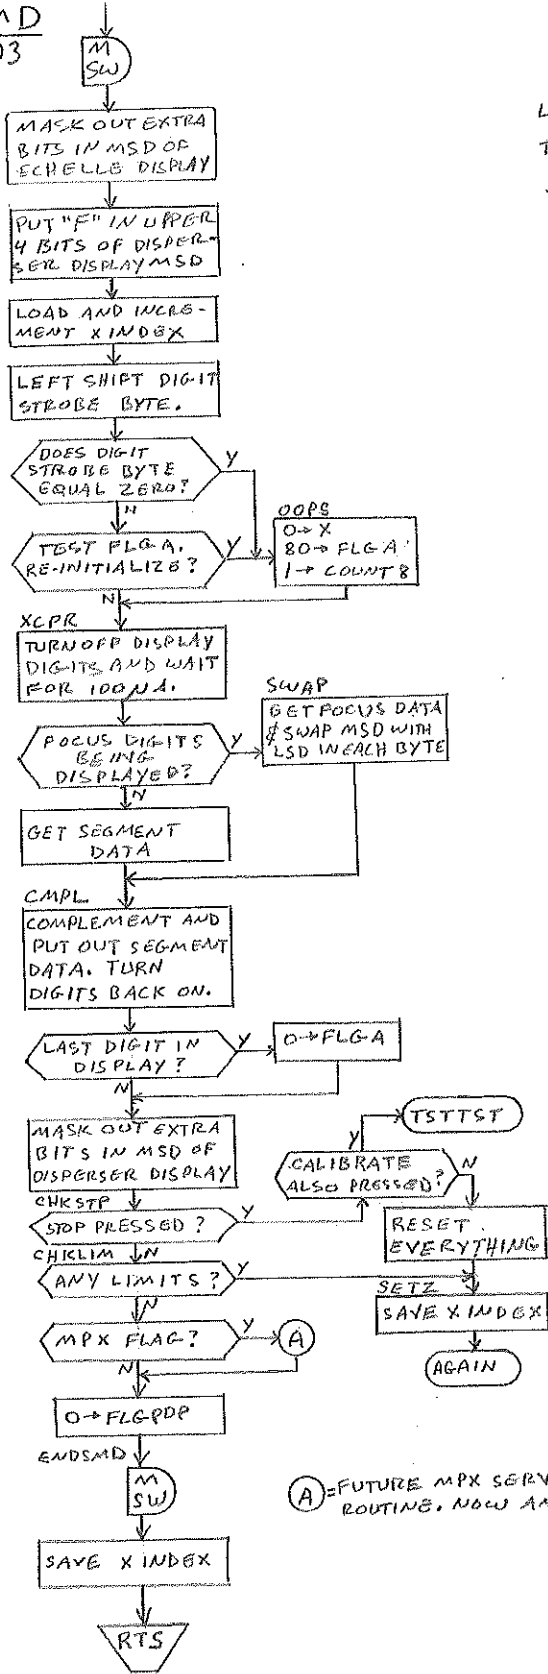 MD
03
M
SW
MASK OUT EXTRA
BITS IN MSD OF
ECHELLE DISPLAY
PUT "F" IN UPPER
4 BITS OF DISPER-
SER DISPLAY MSD
LOAD AND INCRE-
MENT X INDEX
LEFT SHIFT DIGIT
STROBE BYTE.
DOES DIGIT
STROBE BYTE
EQUAL ZERO?
Y
N
TEST FLGA.
RE-INITIALIZE?
Y
N
OOPS
0→X
80→FLGA
1→COUNT8
XCPR
TURN OFF DISPLAY
DIGITS AND WAIT
FOR 100UA.
FOCUS DIGITS
BEING
DISPLAYED?
Y
N
SWAP
GET FOCUS DATA
& SWAP MSD WITH
LSD IN EACH BYTE
GET SEGMENT
DATA
CMPL
COMPLEMENT AND
PUT OUT SEGMENT
DATA. TURN
DIGITS BACK ON.
LAST DIGIT IN
DISPLAY?
Y
N
0→FLGA
MASK OUT EXTRA
BITS IN MSD OF
DISPERSER DISPLAY
CHKSTP
STOP PRESSED?
Y
N
TSTTST
Y
CALIBRATE
ALSO PRESSED?
N
RESET
EVERYTHING
CHKLIM
ANY LIMITS?
Y
N
SETZ
SAVE X INDEX
AGAIN
MPX FLAG?
Y
A
N
0→FLGPDP
ENDSMD
M
SW
SAVE X INDEX
RTS
A = FUTURE MPX SERV
ROUTINE. NOW AN
L
T